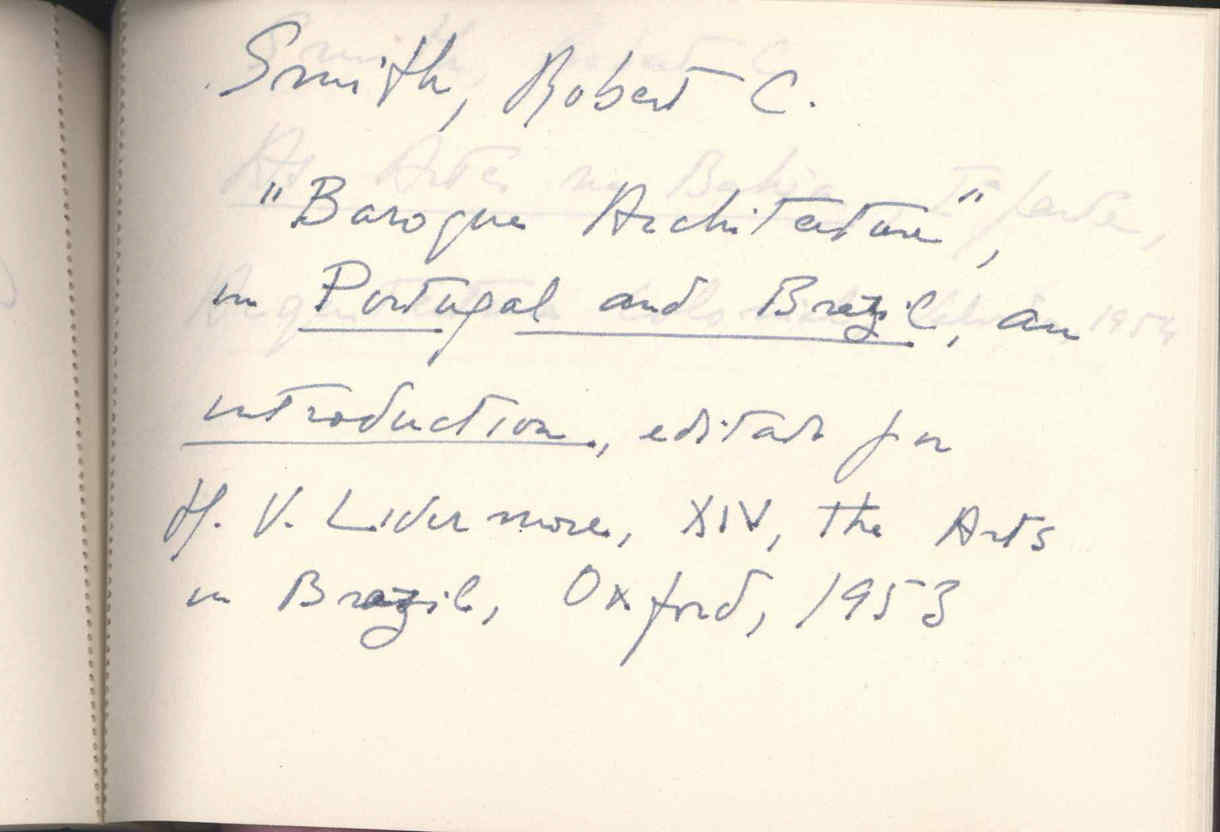 Smith, Robert C.
"Baroque Architecture",
in Portugal and Brazil, an
introduction, editado por
H. V. Livermore, XIV, the Arts
in Brazil, Oxford, 1953